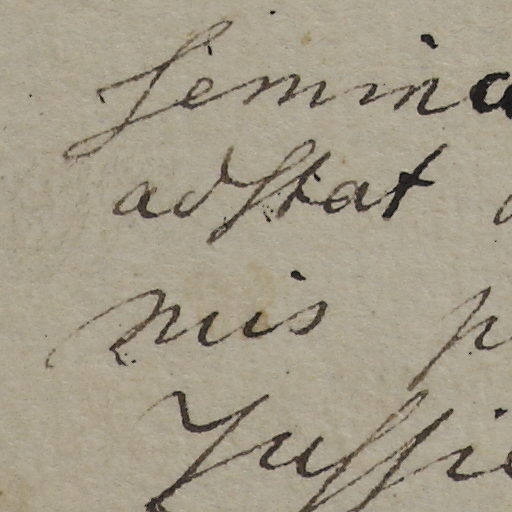 semina
adstat
nis p
Jussie